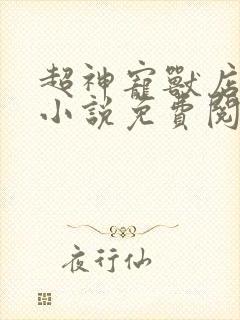 超神寵獸店
小說免費閱
夜行仙